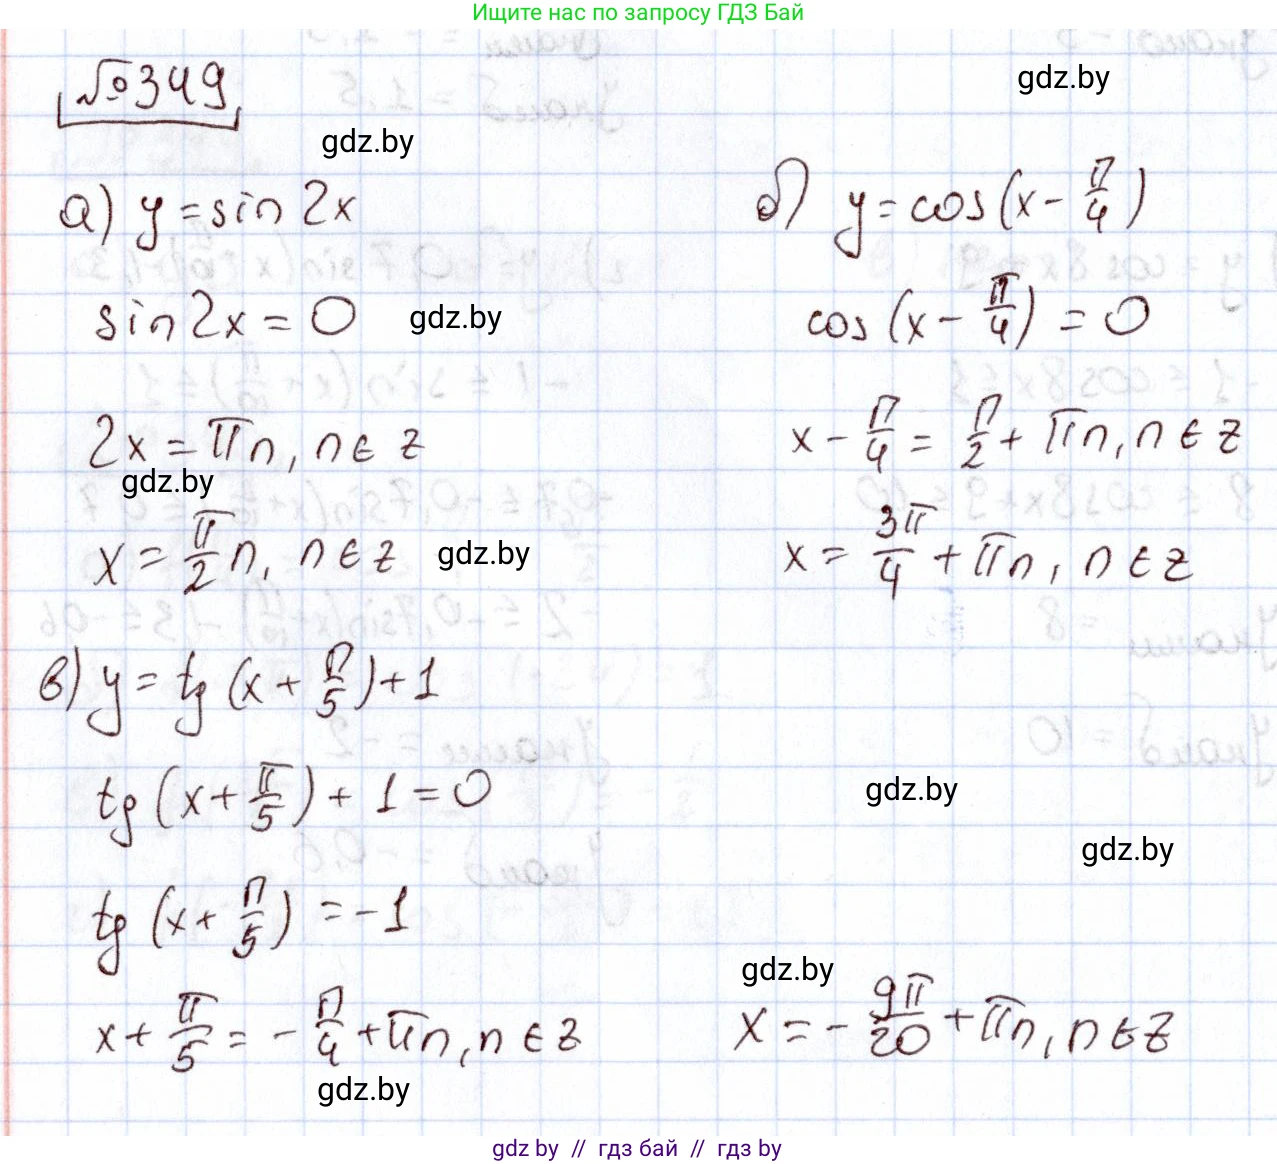 Ищите нас по запросу ГДЗ Бай
№349
gdz.by
gdz.by
а) y = sin 2x
sin 2x = 0
gdz.by
2x = πn, n ∈ z
gdz.by
x = π/2 n, n ∈ z
gdz.by
б) y = cos (x - π/4)
cos (x - π/4) = 0
x - π/4 = π/2 + πn, n ∈ z
x = 3π/4 + πn, n ∈ z
в) y = tg (x + π/5) + 1
tg (x + π/5) + 1 = 0
gdz.by
gdz.by
tg (x + π/5) = -1
gdz.by
x + π/5 = - π/4 + πn, n ∈ z
x = - 9π/20 + πn, n ∈ z
gdz.by
gdz by // гдз бай // gdz by